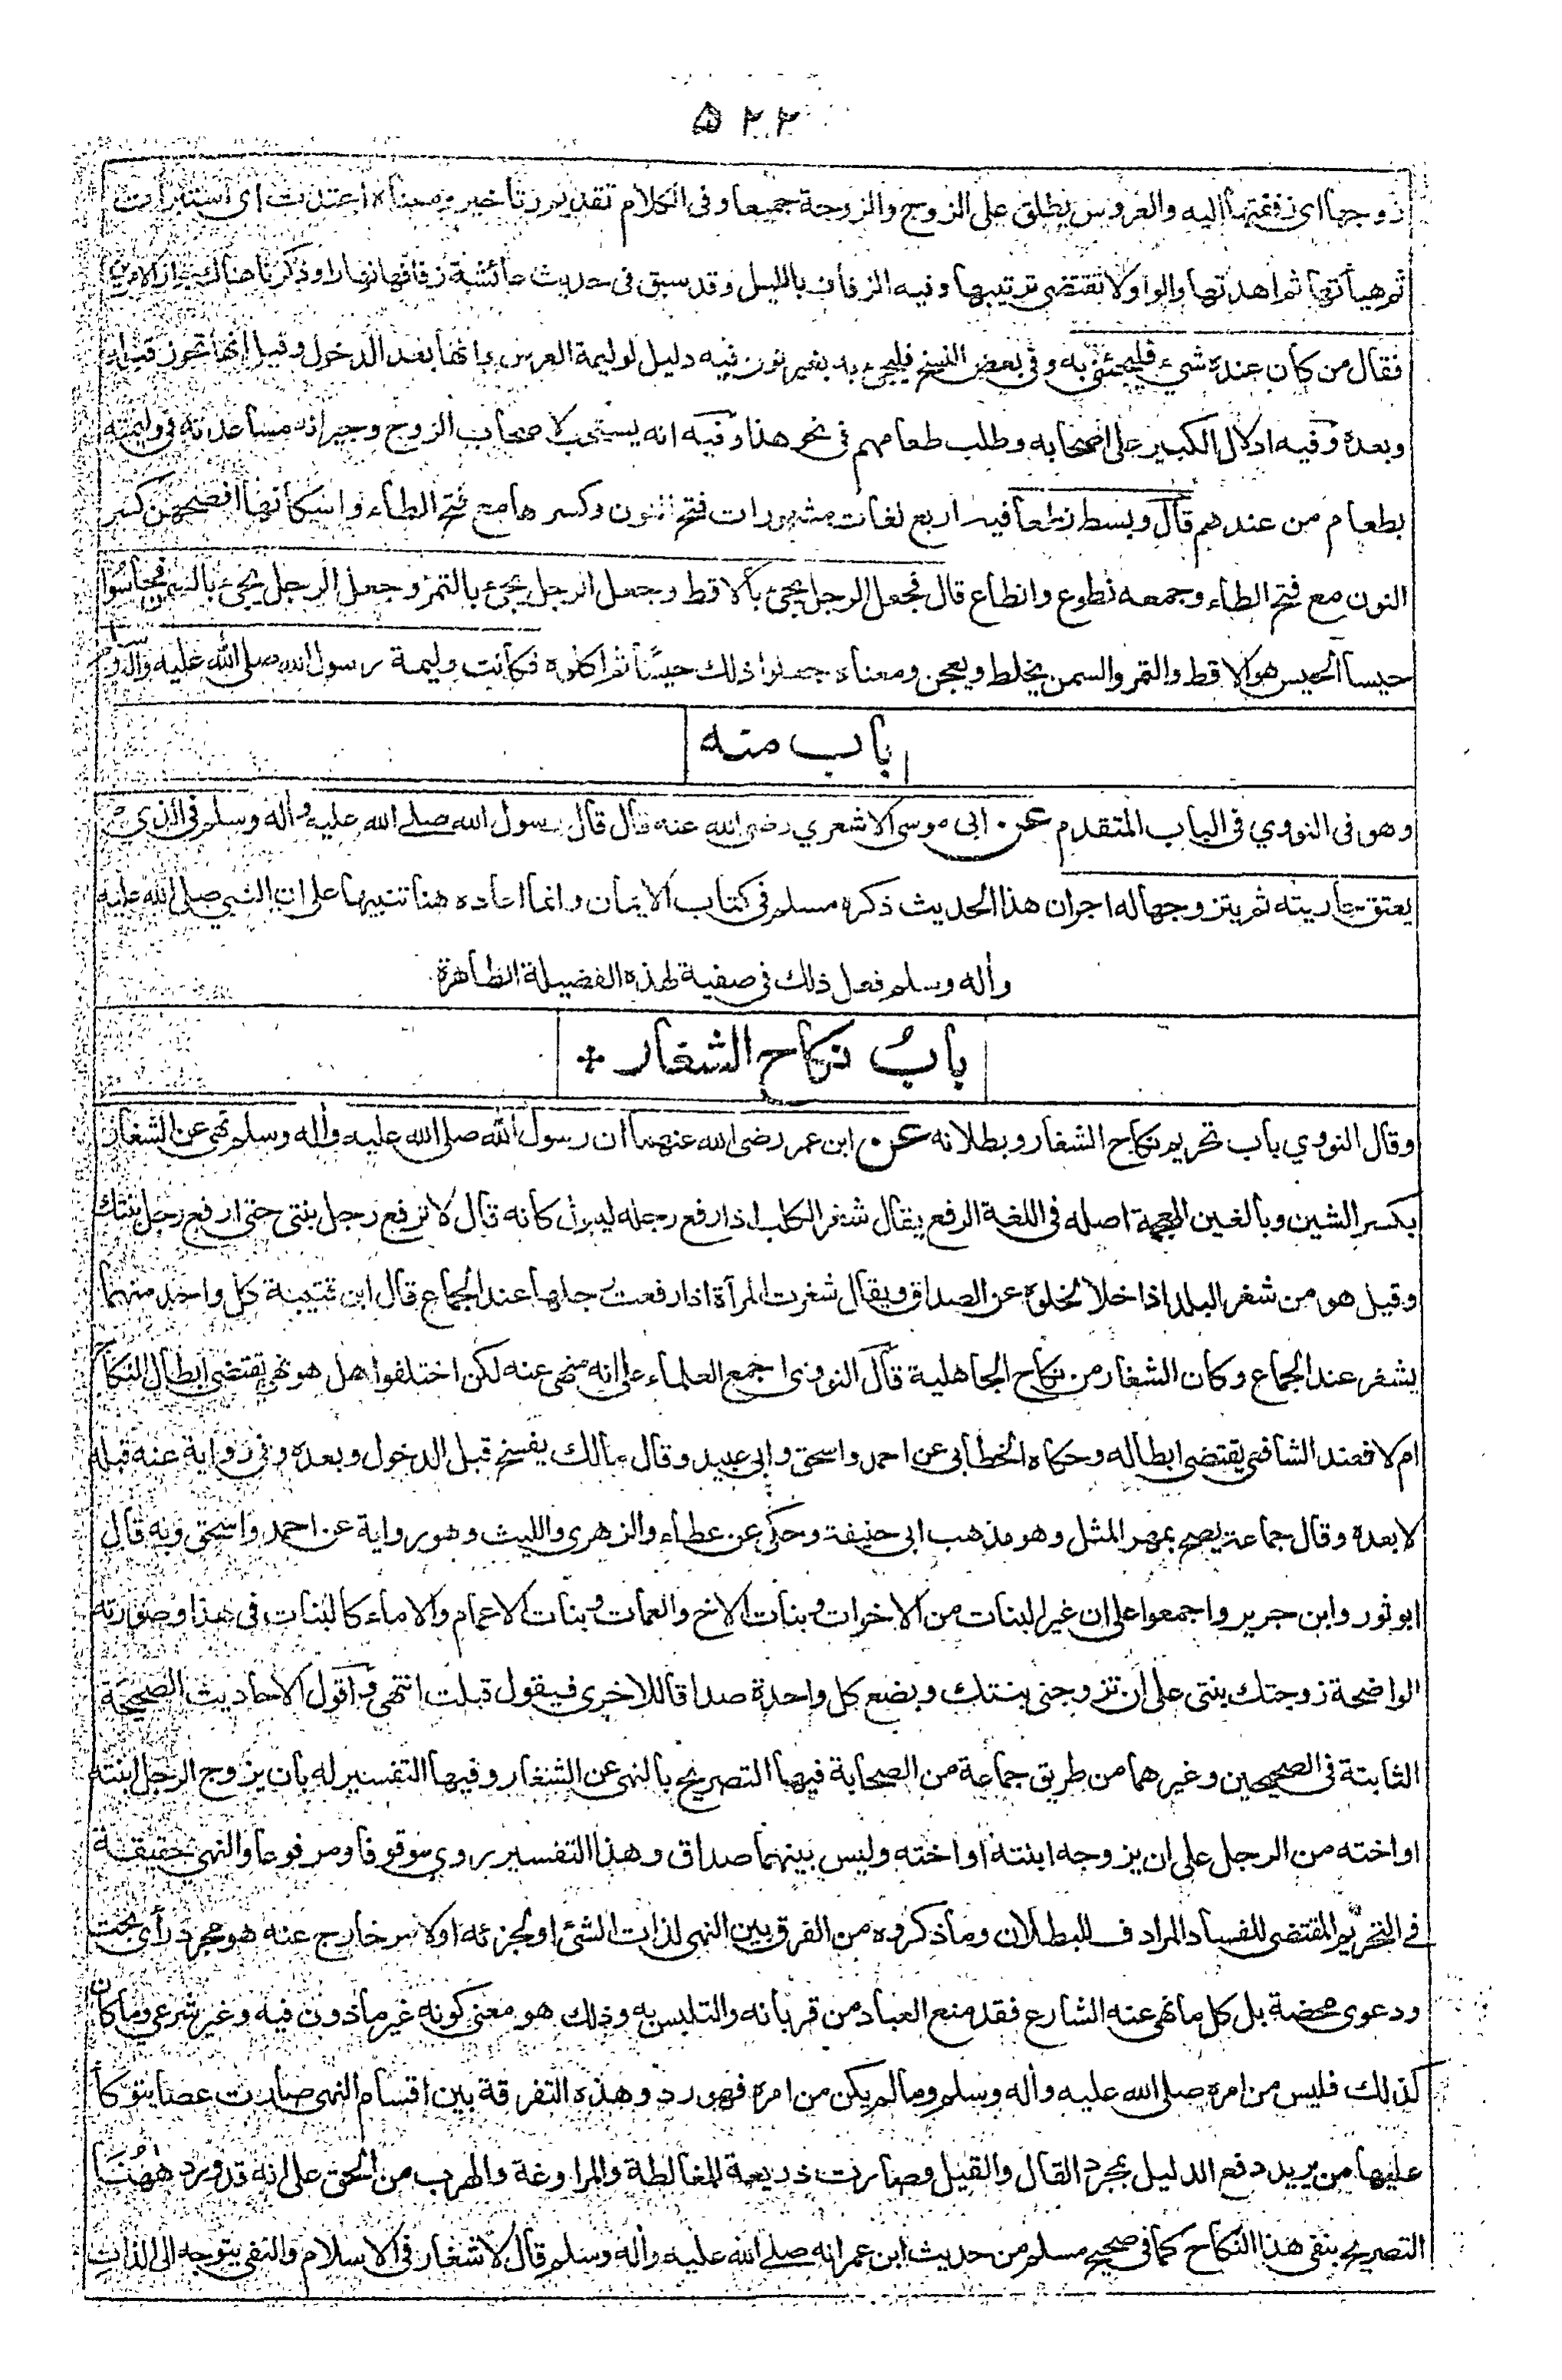 ۵۲۲
زوجها اى زففتها اليه والعروس يطلق على الزوج والزوجة جميعا وفى الكلام تقديم وتاخير ومعناه اعتدت اى استبرأت
ثم هيأتها ثم اهدتها والواو لا تقتضى ترتيبها وفيه الزفاف بالليل وقد سبق فى حديث عائشة زفافها نهارا وذكرنا هناك جواز الامرين
فقال من كان عنده شيء فليجئنى به وفى بعض النسخ فليجئ به بغير نون فيه دليل لوليمة العرس وانها بعد الدخول وقيل انها تجوز قبله
وبعده وفيه ادلال الكبير على اصحابه وطلب طعامهم فى نحو هذا وفيه انه يستحب لاصحاب الزوج وجيرانه مساعدته فى وليمته
بطعام من عندهم قال وبسط نطعا فيه اربع لغات مشهورات فتح النون وكسرها مع فتح الطاء واسكانها افصحهن كسر
النون مع فتح الطاء وجمعه نطوع وانطاع قال فجعل الرجل يجئ بالاقط وجعل الرجل يجئ بالتمر وجعل الرجل يجئ بالسمن فحاسوا
حيسا الحيس هو الاقط والتمر والسمن يخلط ويعجن ومعناه جعلوا ذلك حيسًا ثم اكلوه فكانت وليمة رسول الله صلى الله عليه واله وسلم
باب منه
وهو فى النووي فى الباب المتقدم عن ابى موسى الاشعري رضى الله عنه قال قال رسول الله صلى الله عليه وأله وسلم فى الذي
يعتق جاريته ثم يتزوجها له اجران هذا الحديث ذكره مسلم فى كتاب الايمان وانما اعاده هنا تنبيها على ان النبي صلى الله عليه
وأله وسلم فعل ذلك فى صفية لهذه الفضيلة الظاهرة
بابُ نكاح الشغار +
وقال النووي باب تحريم نكاح الشغار وبطلانه عن ابن عمر رضى الله عنهما ان رسول الله صلى الله عليه وأله وسلم نهى عن الشغار
بكسر الشين وبالغين المعجمة اصله فى اللغة الرفع يقال شغر الكلب اذا رفع رجله ليبول كانه قال لا ترفع رجل بنتى حتى ارفع رجل بنتك
وقيل هو من شغر البلد اذا خلا لخلوه عن الصداق ويقال شغرت المرآة اذا رفعت رجلها عند الجماع قال ابن قتيبة كل واحد منهما
يشغر عند الجماع وكان الشغار من نكاح الجاهلية قال النووى اجمع العلماء على انه منهى عنه لكن اختلفوا هل هو نهى يقتضى ابطال النكاح
ام لا فعند الشافعى يقتضى ابطاله وحكاه الخطابى عن احمد واسحق وابى عبيد وقال مالك يفسخ قبل الدخول وبعده وفى رواية عنه قبله
لا بعده وقال جماعة يصح بمهر المثل وهو مذهب ابى حنيفة وحكى عن عطاء والزهرى والليث وهو رواية عن احمد واسحق وبه قال
ابو ثور وابن جرير واجمعوا على ان غير البنات من الاخوات وبنات الاخ والعمات وبنات الاعمام والاماء كالبنات فى هذا وصورته
الواضحة زوجتك بنتى على ان تزوجنى بنتك وبضع كل واحدة صداقا للاخرى فيقول قبلت انتهى وأقول الاحاديث الصحيحة
الثابتة فى الصحيحين وغيرهما من طريق جماعة من الصحابة فيها التصريح بالنهى عن الشغار وفيها التفسير له بان يزوج الرجل ابنته
او اخته من الرجل على ان يزوجه ابنته او اخته وليس بينهما صداق وهذا التفسير روي موقوفا ومرفوعا والنهى حقيقة
فى التحريم المقتضى للفساد المرادف للبطلان وما ذكروه من الفرق بين النهى لذات الشئ او لجزئه او لامر خارج عنه هو مجرد رأى بحت
ودعوى محضة بل كل ما نهى عنه الشارع فقد منع العباد من قربانه والتلبس به وذلك هو معنى كونه غير ماذون فيه وغير شرعي وما كان
كذلك فليس من امره صلى الله عليه وأله وسلم وما لم يكن من امره فهو رد وهذه التفرقة بين اقسام النهى صارت عصا يتوكأ
عليها من يريد دفع الدليل بمجرد القال والقيل وصارت ذريعة للمغالطة والمراوغة والهرب من الحق على انه قد ورد ههُنا
التصريح بنفى هذا النكاح كما فى صحيح مسلم من حديث ابن عمر انه صلى الله عليه وأله وسلم قال لا شغار فى الاسلام والنفى يتوجه الى الذات